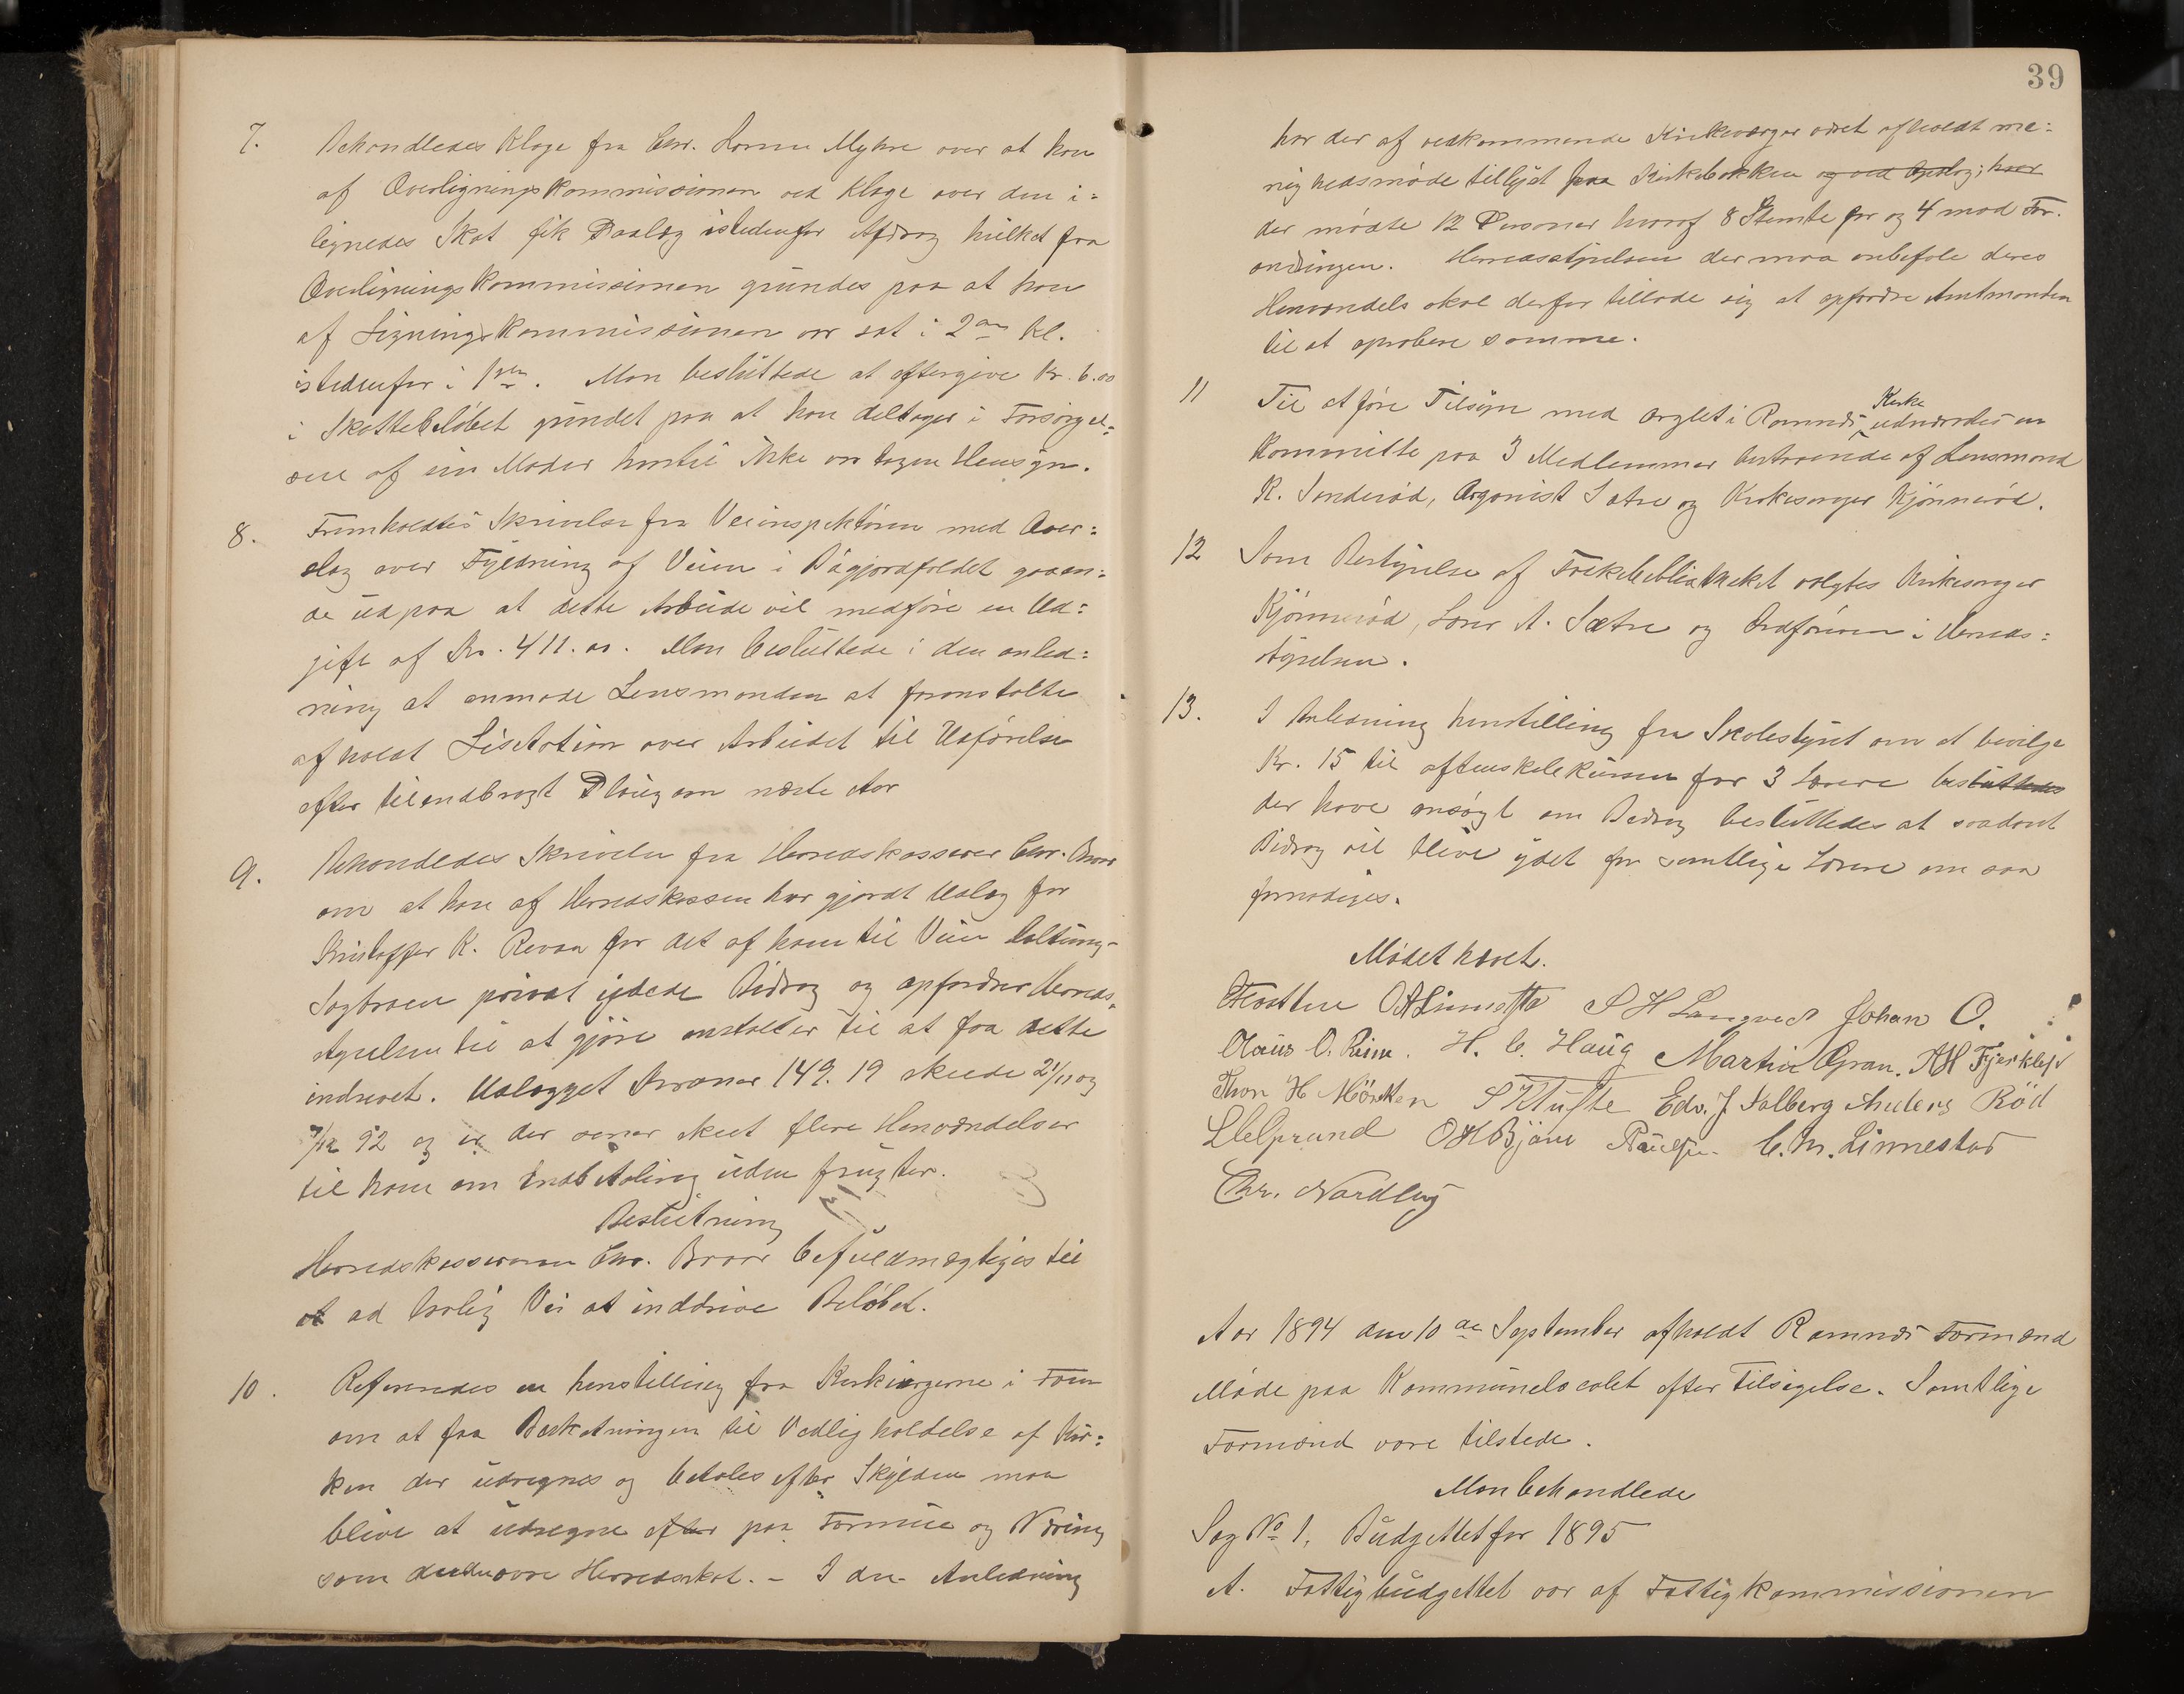 7. Behandledes Klage fra Chr. Horne Myhre over at han
af Overligningskommissionen ved Klage over den i=
lignedes Skat fik Paalæg istedenfor Afdrag hvilket fra
Overligningskommissionen grundes paa at han
af Ligningskommissionen var sat i 2den Kl.
istedenfor i 1ste. Man besluttede at eftergive Kr. 6.00
i Skattebeløbet grundet paa at han deltager i Forsørgel=
sen af sin Moder hvortil ikke var tagen Hensyn.
8. Fremholdtes Skrivelse fra Veiinspektøren med Over=
slag over Fyldning af Veien i gaaen=
de ud paa at dette Arbeide vil medføre en Ud=
gift af Kr. 411.00. Man besluttede i den anled=
ning at anmode Lensmanden at foranstalte
afholdt Lisetation over Arbeidet til Udførelse
efter tilendebragt Pløigen næste Aar
9. Behandledes Skrivelse fra Herredskasserer Chr. Braar
om at han af Herredskassen har gjordt Udlæg for
Kristoffer K. Revaa for det af ham til Veien
privat ydede Bidrag og opfordrer Herreds=
styrelsen til at gjøre anstalter til at faa dette
indrevet. Udlægget Kroner 149.19 skeede 21/11 og
7/12 92 og er der senere skeet flere Henvendelser
til ham om Indbetaling uden frugter.
Beslutning
Herredskassereren Chr. Braar befuldmægtiges til
at ad lovlig Vei at inddrive Beløbet.
10. Refereredes en henstilling fra Kirkeværgerne i Fon
om at faa Beskatningen til Vedligeholdelse af Kir=
ken der udregnes og betales efter Skylden maa
blive at udregne efter paa Formue og Næring
som Herredsskat. – I den Anledning
39
har der af vedkommende Kirkeværger været afholdt me=
nighedsmøde tillyst fra Kirkebakken og ved Opslag; hvor
der mødte 12 Personer hvoraf 8 Stemte for og 4 mod For.
andringen. Herredsstyrelsen der maa anbefale deres
Henvendels skal derfor tillade sig at opfordre Amtmanden
til at aprobere samme.
11 Til at føre Tilsyn med orglet i Ramnæs Kirke udnævntes en
Kommitte paa 3 Medlemmer bestaaende af Lensmand
K. Sonderød, Organist Sætre og Kirkesanger Kjønnerød.
12 Som Bestyrelse af Folkebibliotheket valgtes Kirkesanger
Kjønnerød, Lærer A. Sætre og Ordføreren i Herreds=
styrelsen.
13. I Anledning henstilling fra Skolestyret om at bevilge
Kr. 15 til aftenskolekursus for 3 Lærere besluttedes
der have ansøgt om Bidrag besluttedes at saadant
Bidrag vil blive ydet for samtlige Lærere om saa
fornødiges.
Mødet hævet.
O A Linnestad S H Langved Johan O.
Olaus O. Reine. H. C. Haug Martin Gran. A H Fjærkleft
Thor H Mörken S Klufte Edv. J Solberg Anders Röd
O H Björe Paulsen C. M. Linnestad
Chr. Nordby
Aar 1894 den 10de September afholdt Ramnæs Formænd
Møde paa Kommunelocalet efter Tilsigelse. Samtlige
Formænd vare tilstede.
Man behandlede
Sag No 1. Budgettet for 1895
A. Fattigbudgettet var af Fattigkommissionen